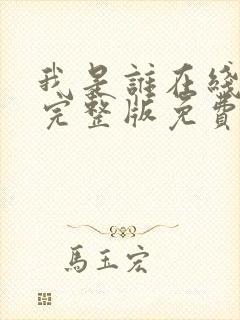 我是誰在綫
完整版免費
馬玉宏